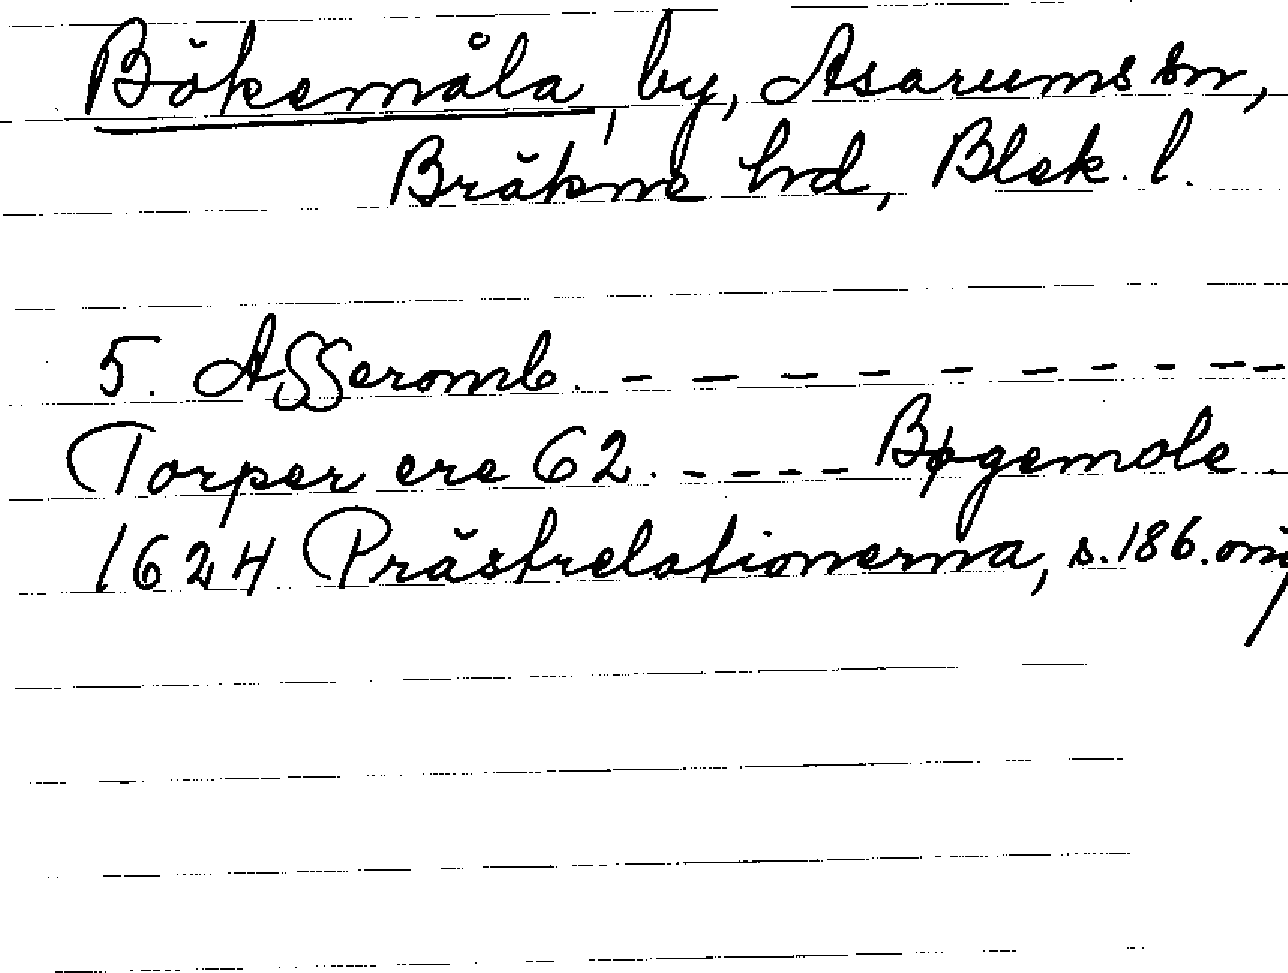 Bökemåla, by, Asarums sn,
Bräkne hd, Blek. l.
5. Asseromb. - - - - - - - - - -
Torper ere 62. - - - - Bøgemole
1624 Prästrelationerna, s. 186. orig